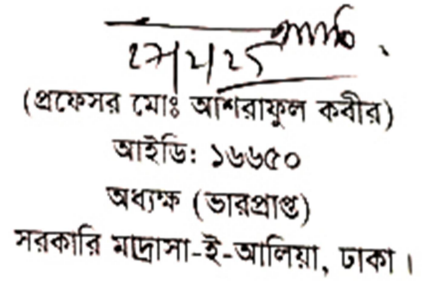 27/2/25
(প্রফেসর মোঃ আশরাফুল কবীর)
আইডি: ১৬৬৫০
অধ্যক্ষ (ভারপ্রাপ্ত)
সরকারি মাদ্রাসা-ই-আলিয়া, ঢাকা।